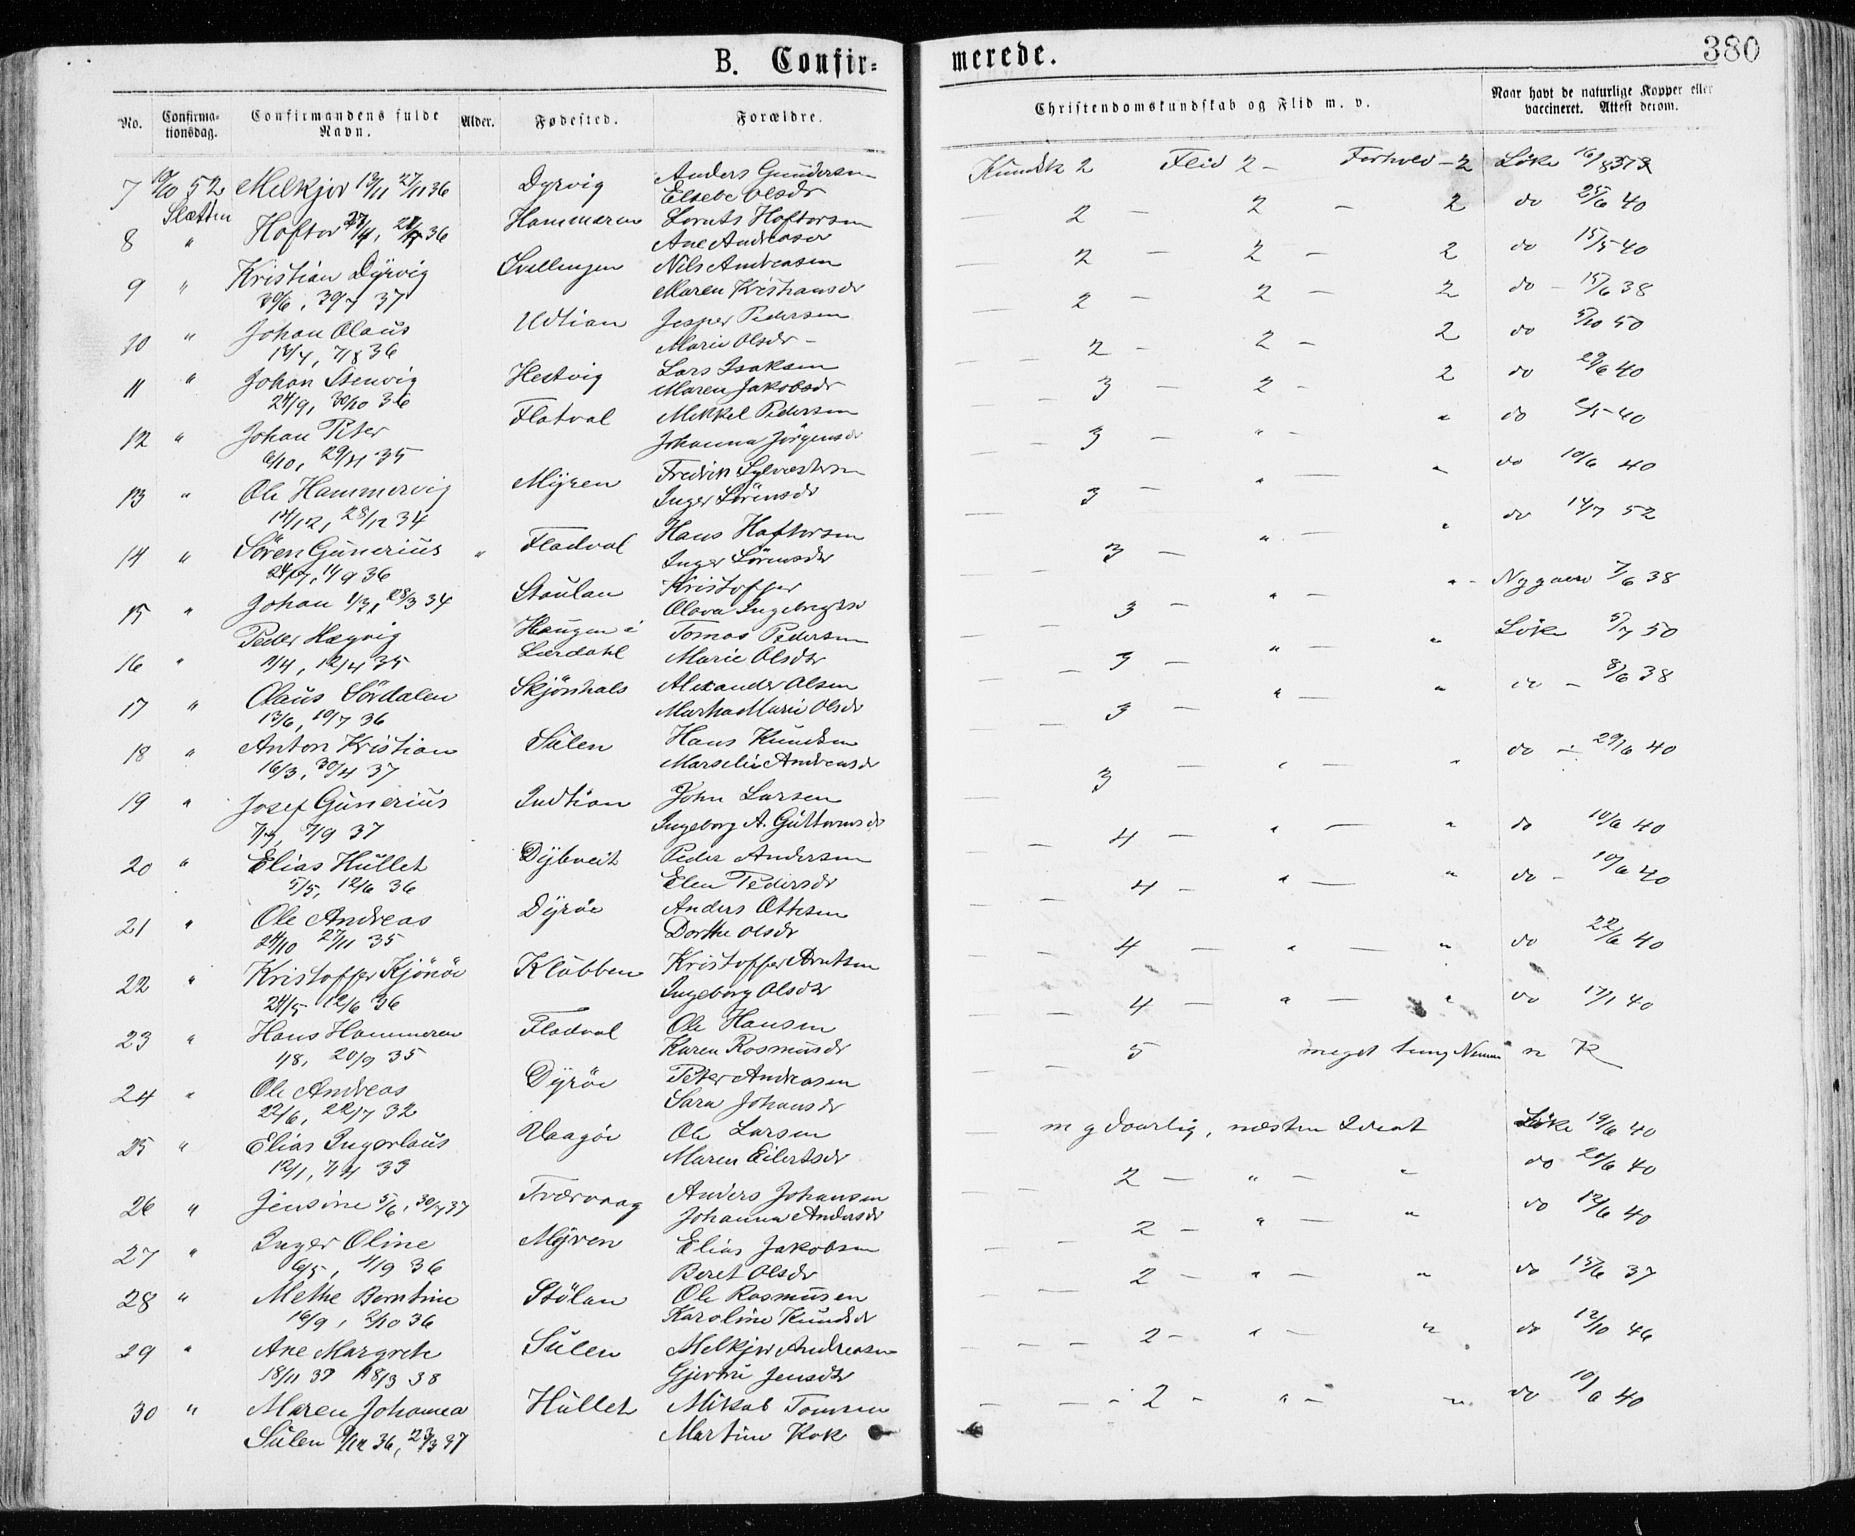 B. Confir-
merede.
380
No.
Confirma-
tionsdag.
Confirmandens fulde
Navn.
Alder.
Fødested.
Forældre.
Christendomskundskab og Flid m. v.
Naar havt de naturlige Kopper eller
vaccineret. Attest derom.
7 10/10 52 Melkjor 13/11 27/11 36 Dyrvig Anders Gundersen
Elsebe Olsdr
Kundsk 2 Flid 2 - Forhold - 2 Löke 16/8 37
Sletten
8 " Hoftor 36 Hammeren Lornts Hoftorsen
Ane Andreasdr
2 - 2 - 2 do 25/6 40
9 " Kristian Dyrvig Svellingen Nils Andreasen
30/6, 30/7 37 Maren Kristiansdr
2 - 2 - 2 do 15/5 40
10 " Johan Olaus Udtian Jesper Pedersen
18/7, 7/8 36 Marie Olsdr -
2 - 2 - 2 do - 15/6 38
11 " Johan Stenvig Hestvig Lars Isaksen
24/9, 30/10 36 Maren Jakobsdr
2 - 2 - 2 do 5/10 50
12 " Johan Peter Flatval Mikkel Pedersen
6/10, 29/11 35 Johanna Jörgensdr
3 - 2 - 2 do 29/6 40
13 " Ole Hammervig Myren Fredrik Sylvestersen
14/12, 28/12 34 Inger Sörensdr
3 - " - " do 6/5 40
14 " Sören Gunerius " Fladval Hans Haftorsen
24/7, 11/9 36 Inger Sörensdr
3 - " - " do 10/6 40
15 " Johan 1/3, 28/3 34 Stoulan Kristoffer
Olava Ingebrigtsdr
3 - " - " do 14/7 52
16 " Peder Hægvig Haugen i Tomas Pedersen
1/4, 12/4 35 Lærdahl Marie Olsdr
3 - " - " - Nygaard 7/6 38
17 " Olaus Sördalen Skjönhals Alexander Olsen
13/6, 10/7 36 Martha Marie Olsdr
3 - " - " Löke 5/7 50
18 " Anton Kristian Sulen Hans Knudsen
16/3, 30/4 37 Marselie Andreasdr
3 - " - " do - 8/6 38
19 " Josef Gunerius Indtian John Larsen
7/9 37 Ingeborg A. Guttormsdr
3 - " - " do - 29/6 40
20 " Elias Hullet Dybveit Peder Andersen
5/5, 12/6 36 Elen Pedersdr
4 - " - " do 10/6 40
21 " Ole Andreas Dyröe Anders Ottesen
24/10 27/11 35 Dorthe Olsdr
4 - " - " do - 10/6 40
22 " Kristoffer Kjönöe Klubben Kristoffer Arntsen
24/5 12/6 36 Ingeborg Olsdr
4 - " - " do 22/6 40
23 " Hans Hammeren Fladval Ole Hansen
4/8, 20/9 35 Karen Rasmusdr
4 - " - " do 17/1 40
24 " Ole Andreas Dyröe Peter Andreasen
22/6, 22/7 32 Sara Johansdr
5 meget tung Nemme n K
25 " Elias Ingerlaus Vaagöe Ole Larsen
12/1, 33 Maren Eilertsdr
m g daarlig, næsten Idiot Löke 19/6 40
26 " Jensine 5/6, 30/7 37 Tværvaag Anders Johansen
Johanna Andersdr
2 - " - " do 20/6 40
27 " Inger Oline Myren Elias Jakobsen
6/5, 4/9 36 Beret Olsdr
2 - " - " do 12/6 40
28 " Methe Berntine Stölan Ole Rasmusen
16/9, 2/10 36 Karoline Knudsdr
2 - " - " do 15/6 37
29 " Ane Margreth Sulen Melkjor Andreasen
18/11 37 18/3 38 Gjertru Jensdtr
2 - " - " do 12/10 46
30 " Maren Johanna Hullet Mikal Tomsen
Sulen 9/12 36, 23/3 37 Martine Kok
2 - " - " do 10/6 40